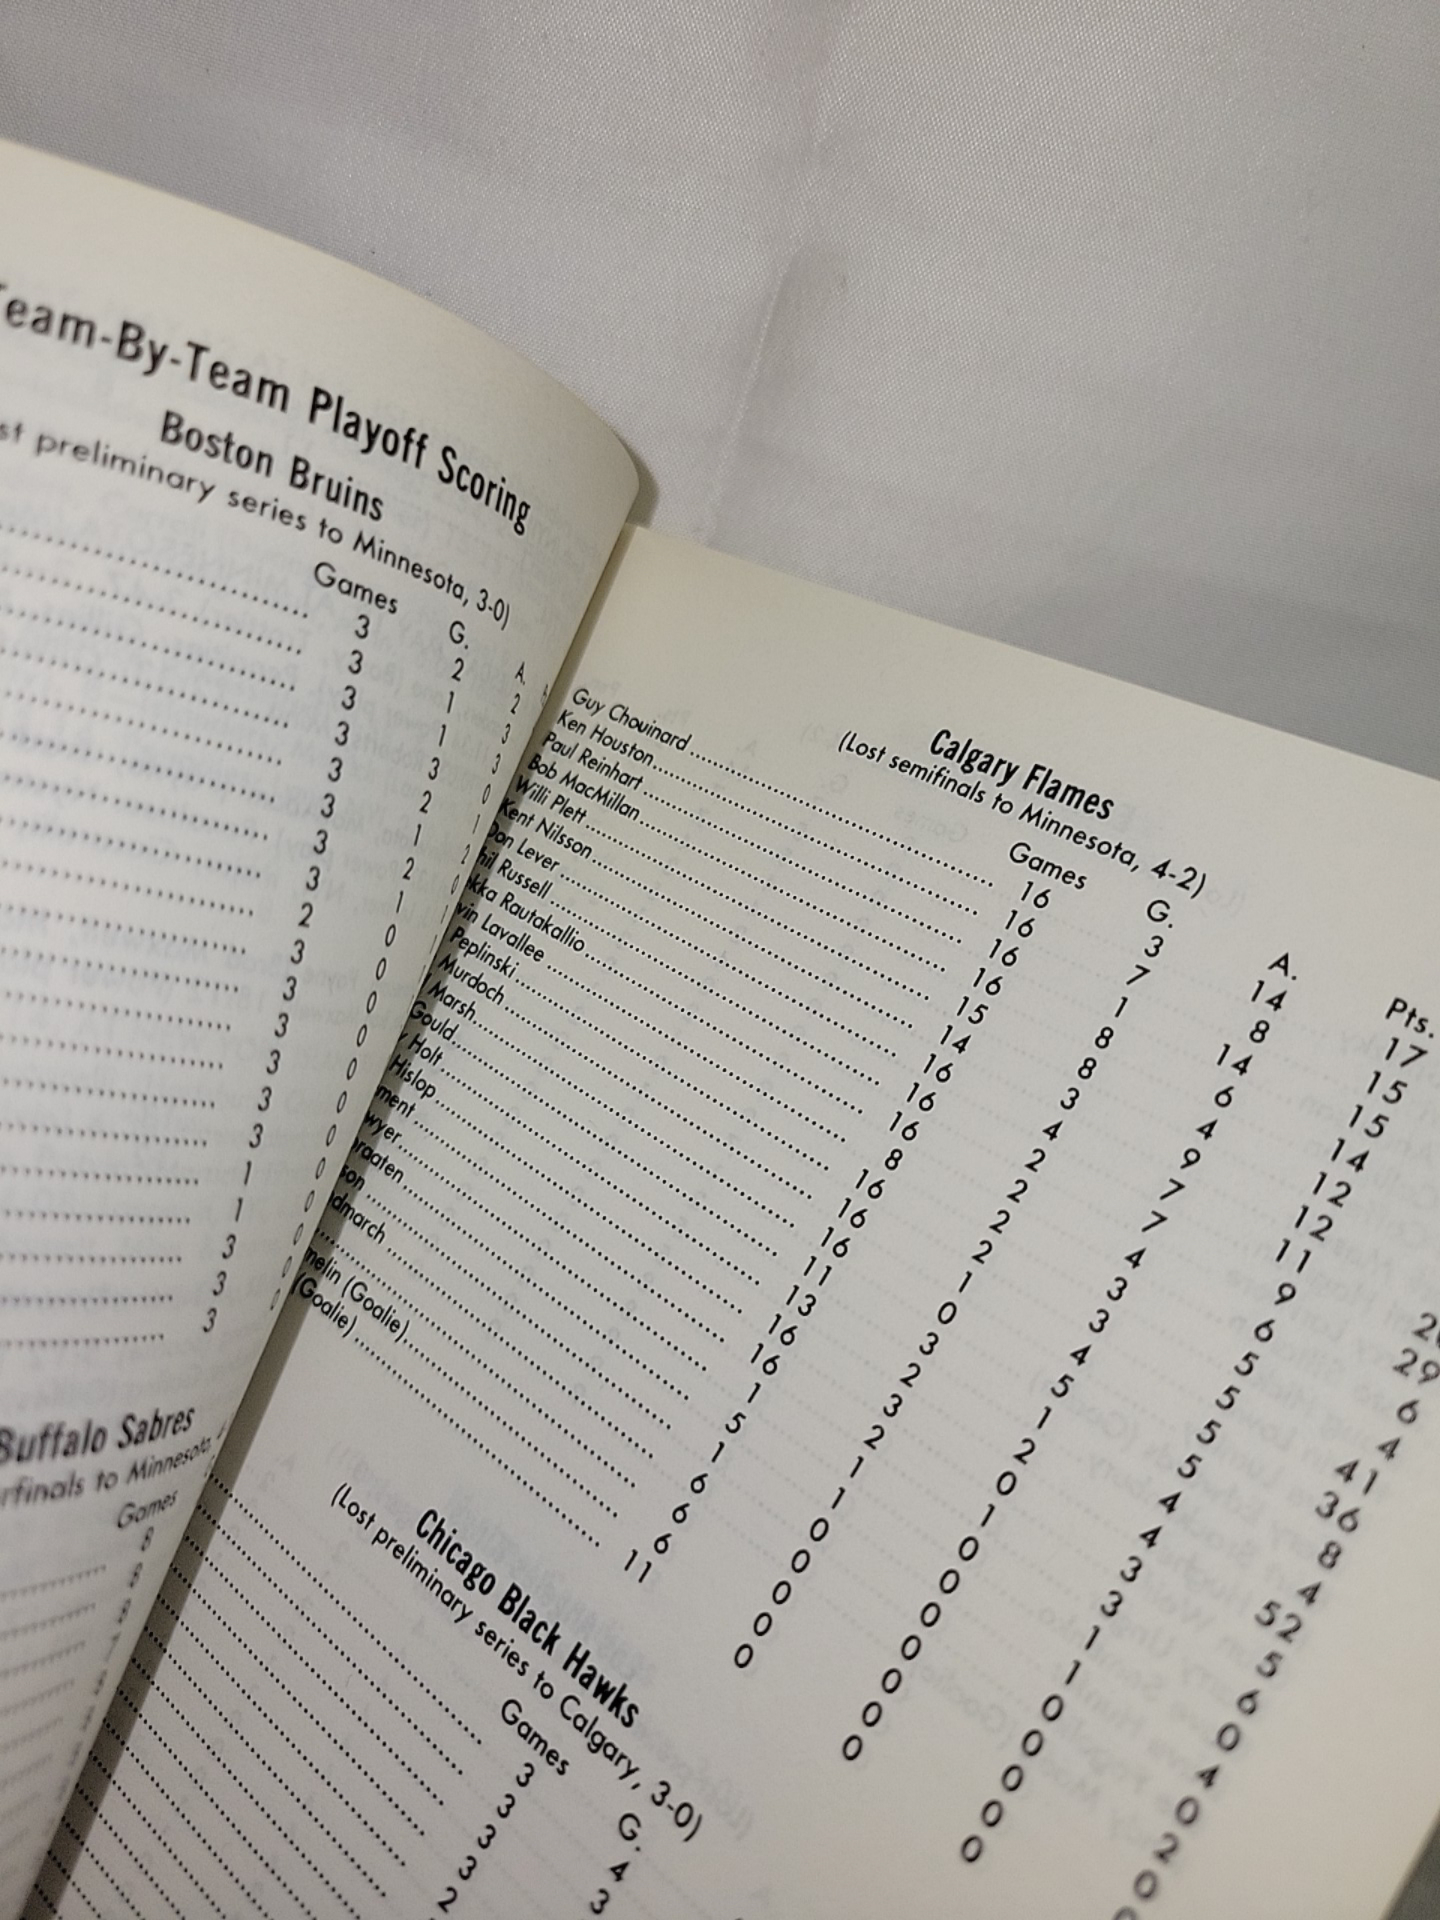 Team-By-Team Playoff Scoring
Boston Bruins
preliminary series to Minnesota, 3-0)
Games G. A.
3 2 2
3 1 3
3 1 3
3 3 0
3 2 1
3 1 2
3 2 0
3 1
2 0
3 0
3 0
3 0
3 0
3 0
3 0
1 0
1 0
3 0
3 0
3 0
Buffalo Sabres
to Minnesota
Games
8
8
8
Calgary Flames
(Lost semifinals to Minnesota, 4-2)
Games G. A. Pts.
Guy Chouinard 16 3 14 17
Ken Houston 16 7 8 15
Paul Reinhart 16 1 14 15
Bob MacMillan 16 8 6 14
Willi Plett 15 8 4 12
Kent Nilsson 14 3 9 12
Don Lever 16 4 7 11
Russell 16 2 7 9 29
Rautakallio 16 2 4 6 6
Lavallee 8 2 3 5 4
Peplinski 16 2 3 5 41
Murdoch 16 1 4 5 36
Marsh 16 0 5 5 8
Gould 11 3 1 4 4
Holt 13 2 2 4 52
Hislop 16 3 0 3 5
16 2 1 3 6
1 1 0 1 0
5 1 0 1 4
1 0 0 0 0
6 0 0 0 2
6 0 0 0 0
(Goalie) 6 0 0 0
(Goalie) 11 0 0 0
Chicago Black Hawks
(Lost preliminary series to Calgary, 3-0)
Games G.
3 4
3 3
3
3
2